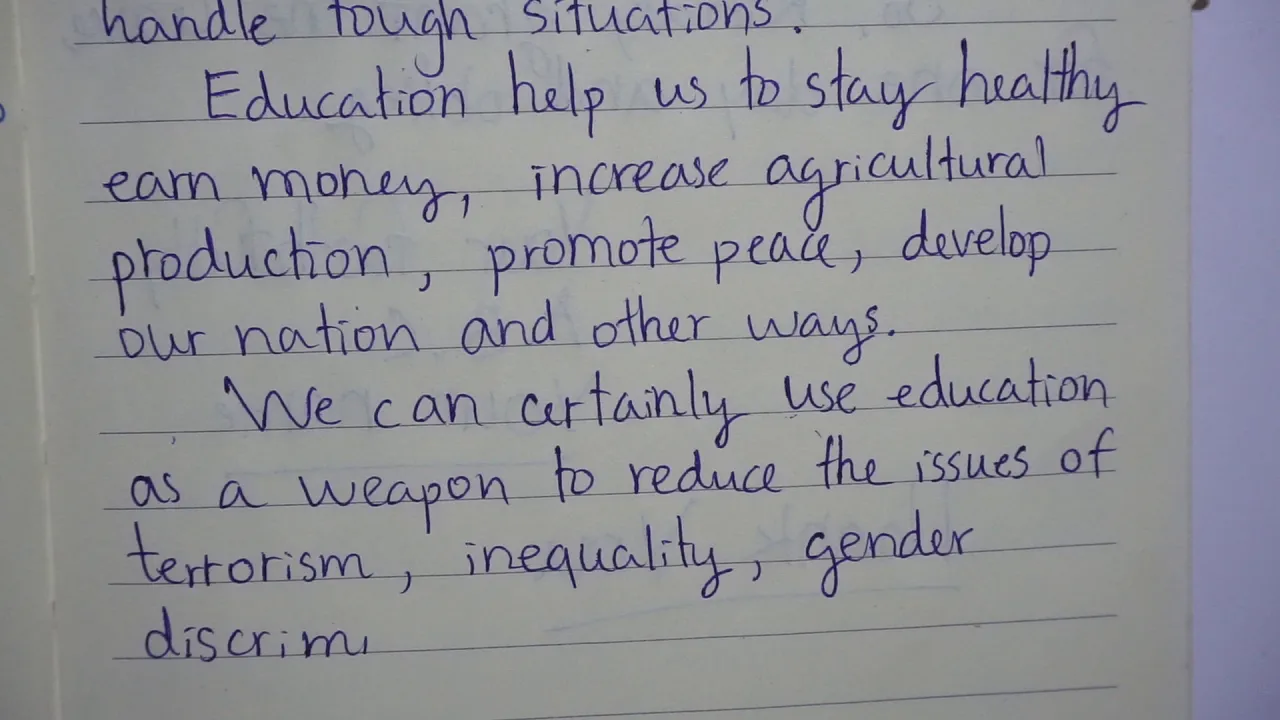 handle tough situations.
Education help us to stay healthy
earn money, increase agricultural
production, promote peace, develop
our nation and other ways.
We can certainly use education
as a weapon to reduce the issues of
terrorism, inequality, gender
discrim